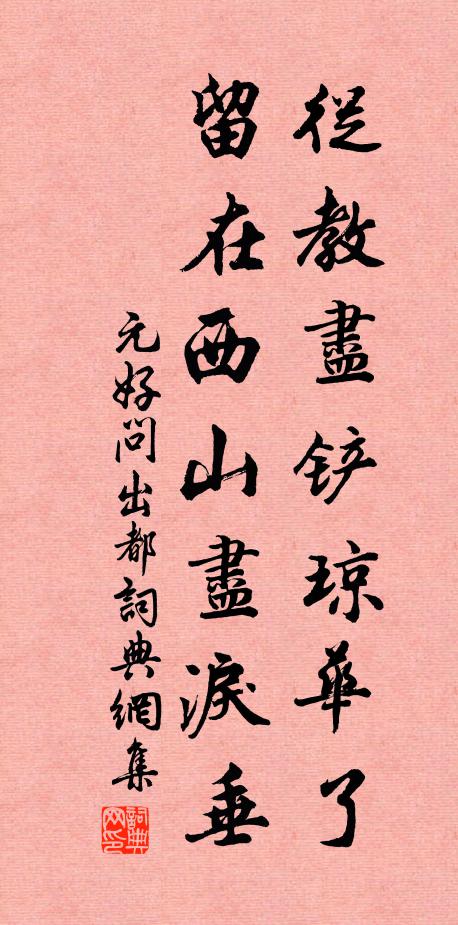 從教盡铲琼華了
留在西山盡淚垂
元好問出都詞典網集
詞典网印